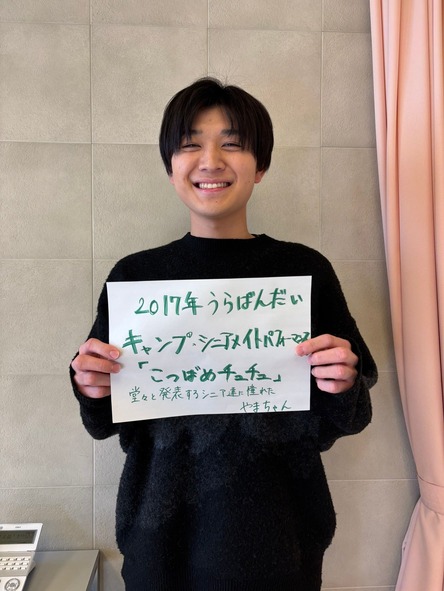 2017年うらばんだい
キャンプ・シニアメイトパフォーマンス
「こつばめチュチュ」
堂々と発表するシニア達に憧れた
やまちゃん